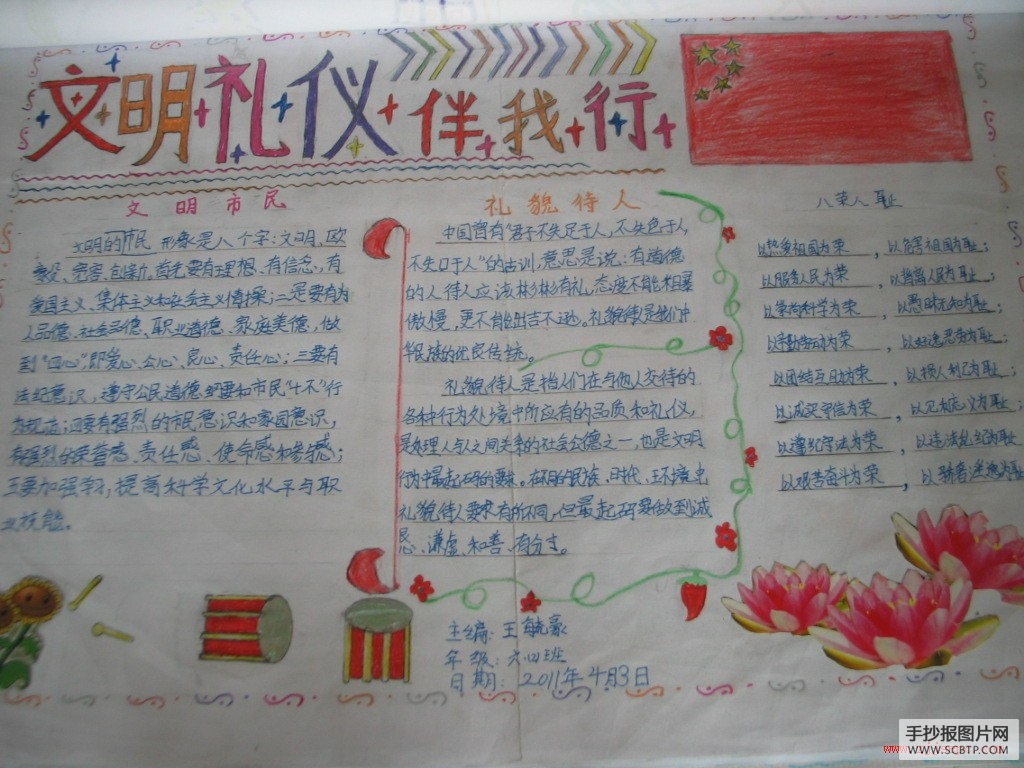 文明礼仪伴我行
文明市民
文明的市民 形象是八个字:文明、
首先要有理想、有信念、有
爱国主义、集体主义和社会主义情操;二是要有为
人品德、社会公德、职业道德、家庭美德,做
到“四心”即爱心、公心、良心、责任心;三要有
法纪意识,遵守公民道德 和市民“七不”行
为规范;四要有强烈的市民意识和家园意识,
有强烈的荣誉感、责任感、使命感和 感;
五要加强学习,提高科学文化水平与职
业技能。
礼貌待人
中国曾有“君子不失足于人,不失色于人,
不失口于人”的古训,意思是说:有道德
的人待人应该彬彬有礼,态度不能粗暴
傲慢,更不能出言不逊。礼貌待人是我们中
华民族的优良传统。
礼貌待人是指人们在与他人交待的
各种行为处境中所应有的品质和礼仪,
是处理人与人之间关系的社会公德之一,也是文明
行为中最起码的要求。在不同的民族、时代、 环境中
礼貌待人要求有所不同,但最起码要做到诚
恳、谦虚、和善、有分寸。
八荣八耻
以热爱祖国为荣,以危害祖国为耻;
以服务人民为荣,以背离人民为耻;
以崇尚科学为荣,以愚昧无知为耻;
以辛勤劳动为荣,以好逸恶劳为耻;
以团结互助为荣,以损人利己为耻;
以诚实守信为荣,以见利忘义为耻;
以遵纪守法为荣,以违法乱纪为耻;
以艰苦奋斗为荣,以骄奢淫逸为耻
主编:王毓豪
年级:六四班
日期:2011年4月3日
手抄报图片网
WWW.SCBTP.COM